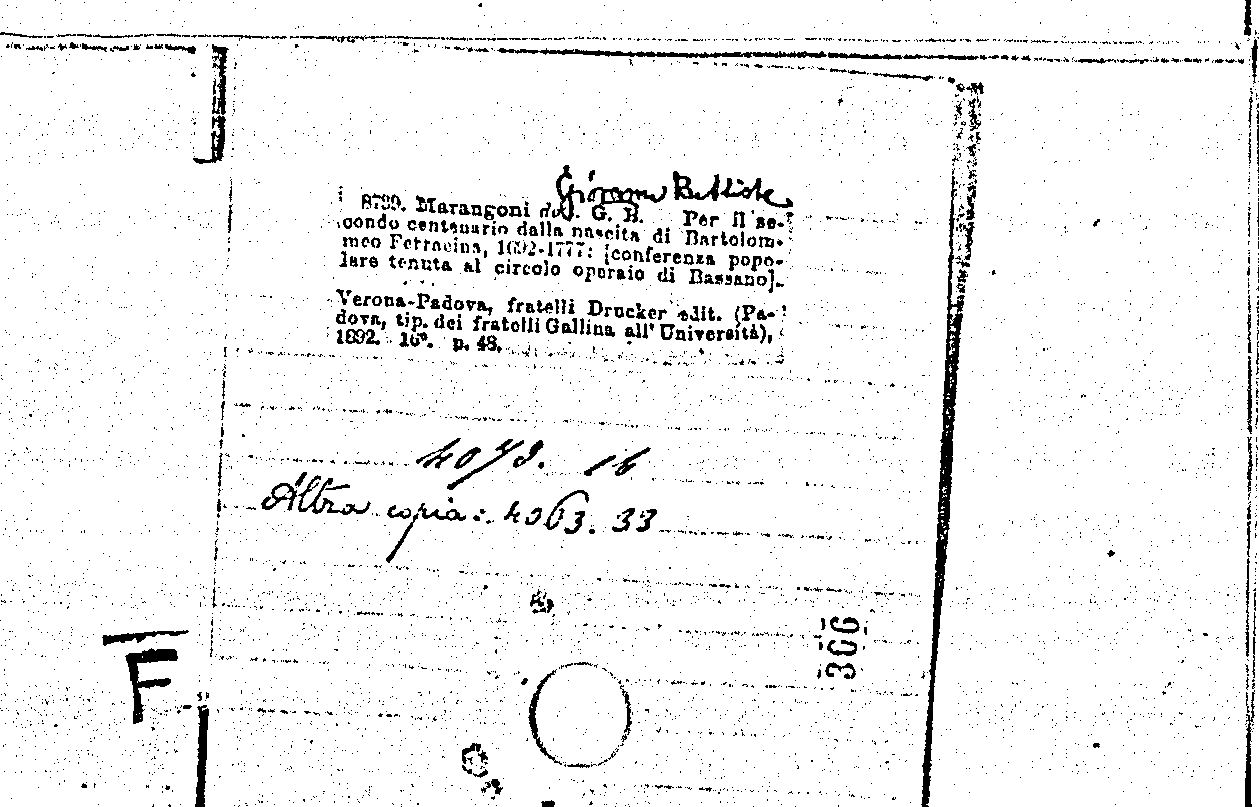 Giovanni Battista
8799. Marangoni dott. G. B. Per il se-
condo centenario dalla nascita di Bartolom-
meo Ferracina, 1692-1777: [conferenza popo-
lare tenuta al circolo operaio di Bassano].
Verona-Padova, fratelli Drucker edit. (Pa-
dova, tip. dei fratelli Gallina all' Università),
1892. 16°. p. 48.
4073. 16
Altra copia: 4063. 33
306
F